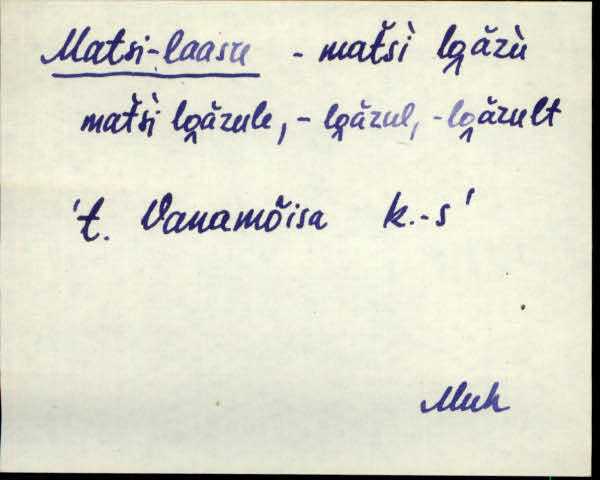 Matsi-laasu - mat̆šì lo̭ăzù
mat̆šì lo̭ăzule, - lo̭ăzul, - lo̭ăzult
't. Vanamõisa k.-s'
Muh